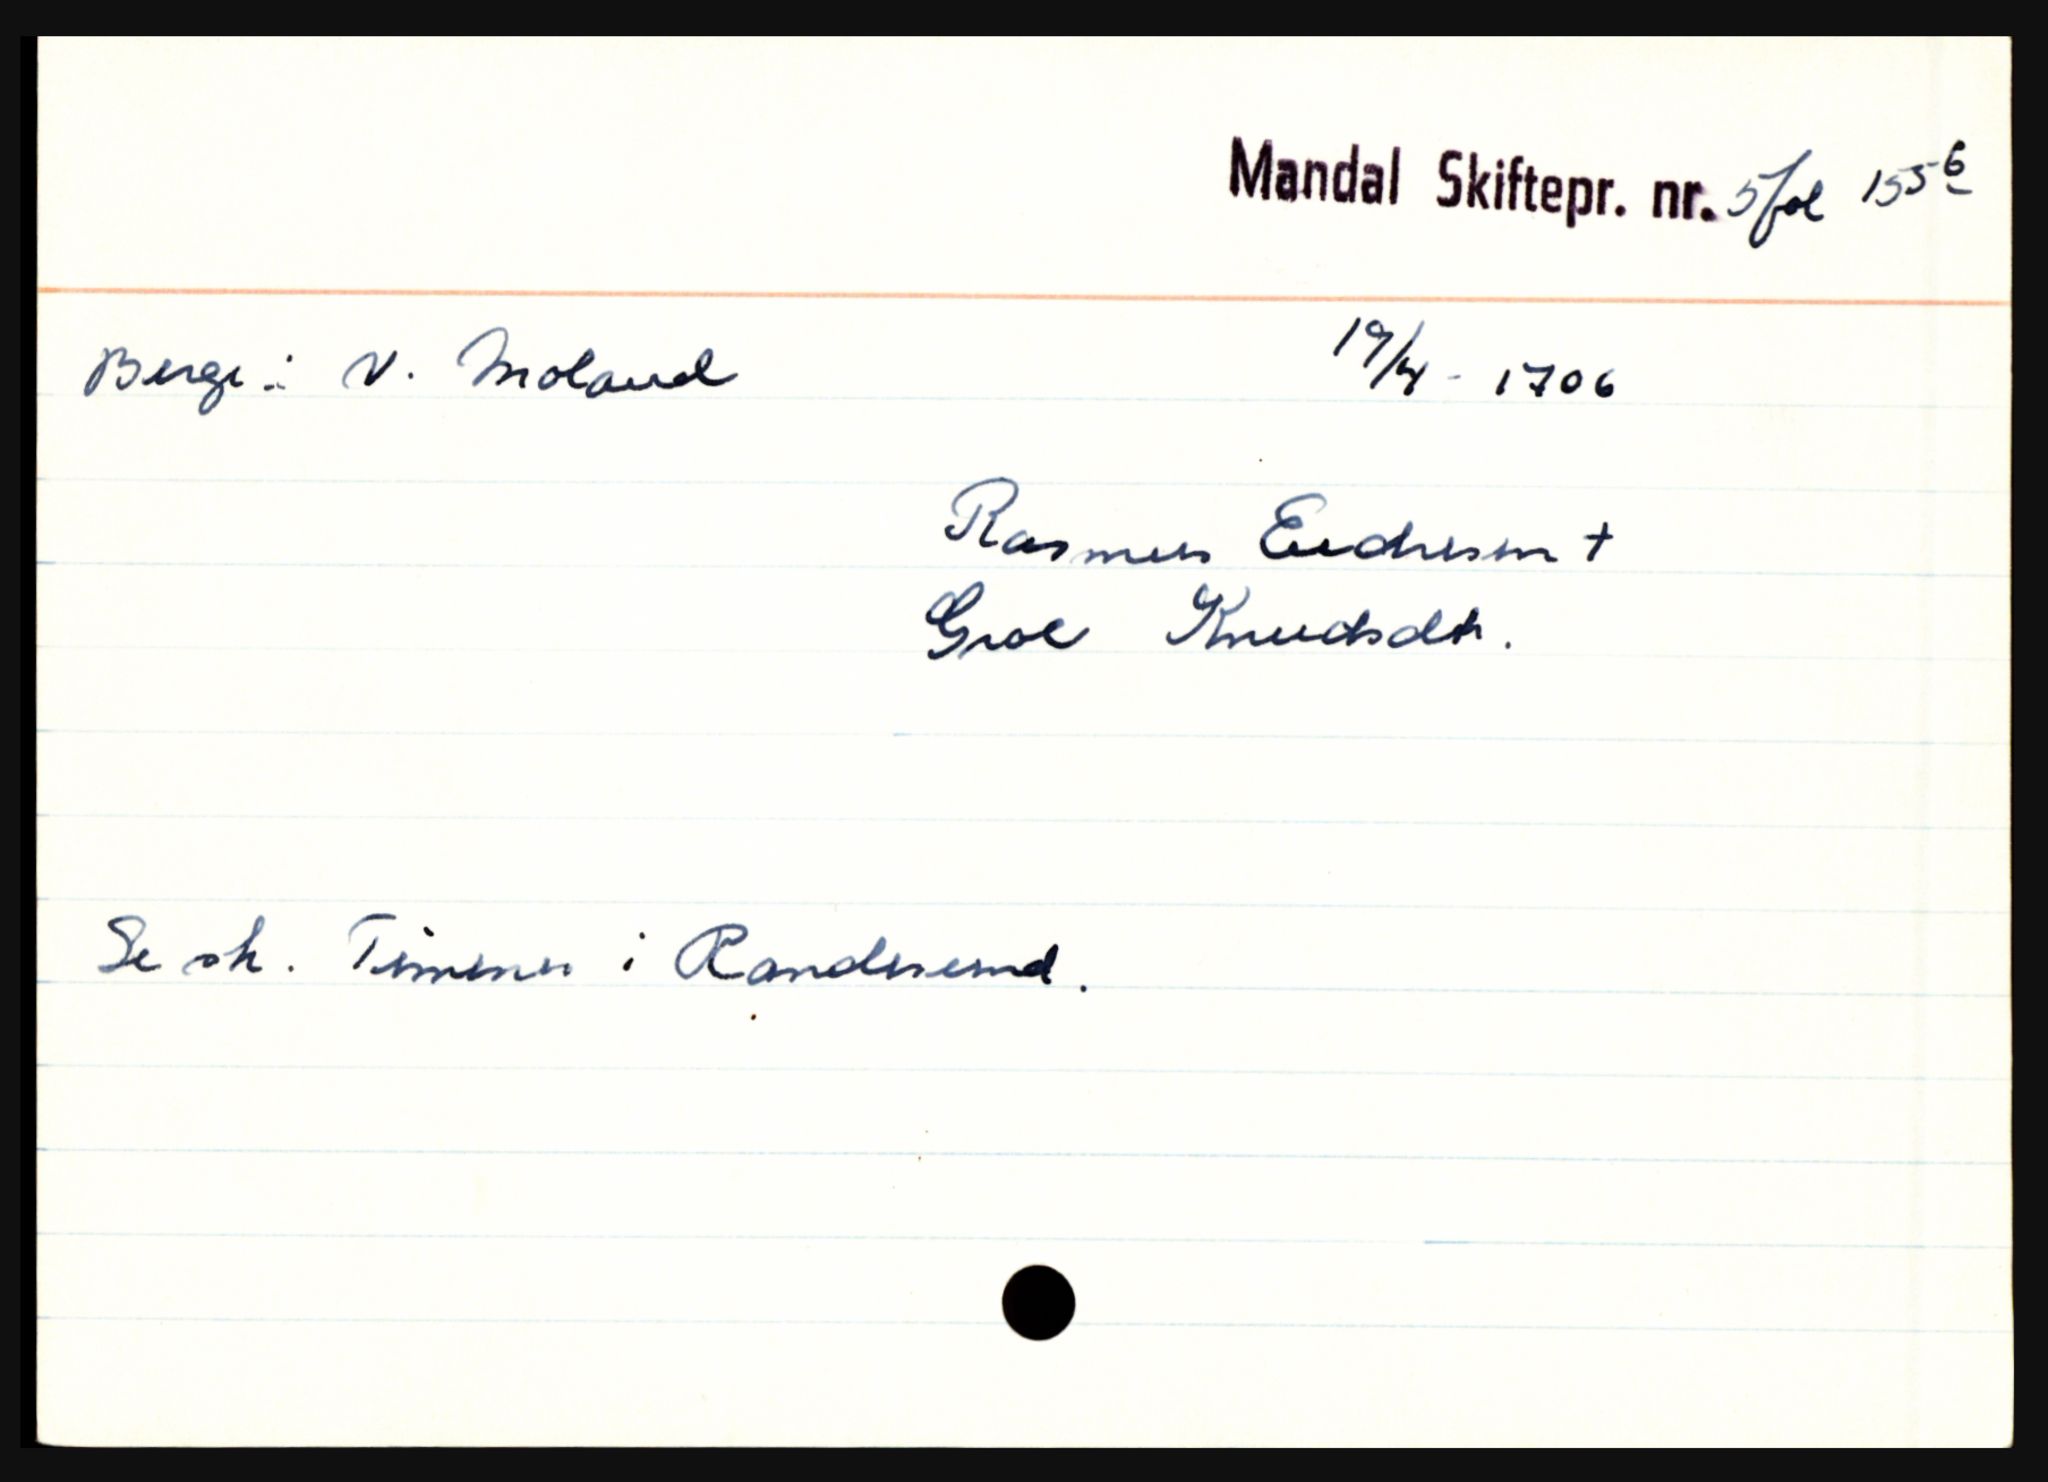 Mandal Skiftepr. nr. 5 fol 155 b
Berge i V. Moland 19/4 - 1706
Rasmus Endresen +
Groe Knudsdtr.
Se sk. Timenes i Randesund.